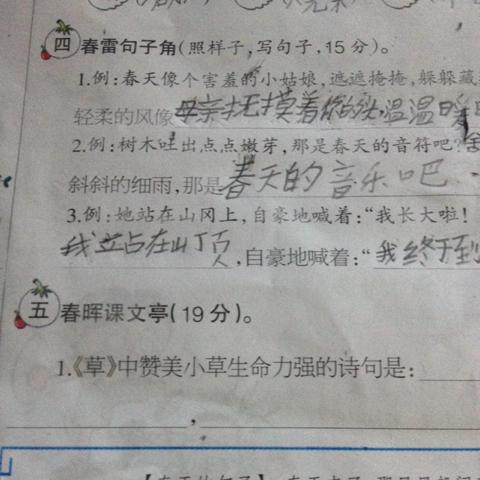 四 春雷句子角(照样子,写句子,15分)。
1.例:春天像个害羞的小姑娘,遮遮掩掩,躲躲藏
轻柔的风像母亲抚摸着你的头温温暖
2.例:树木吐出点点嫩芽,那是春天的音符吧?
斜斜的细雨,那是春天的音乐吧
3.例:她站在山冈上,自豪地喊着:“我长大啦!
我立占在山顶,自豪地喊着:“我终于到
五 春晖课文亭(19分)。
1.《草》中赞美小草生命力强的诗句是:
,